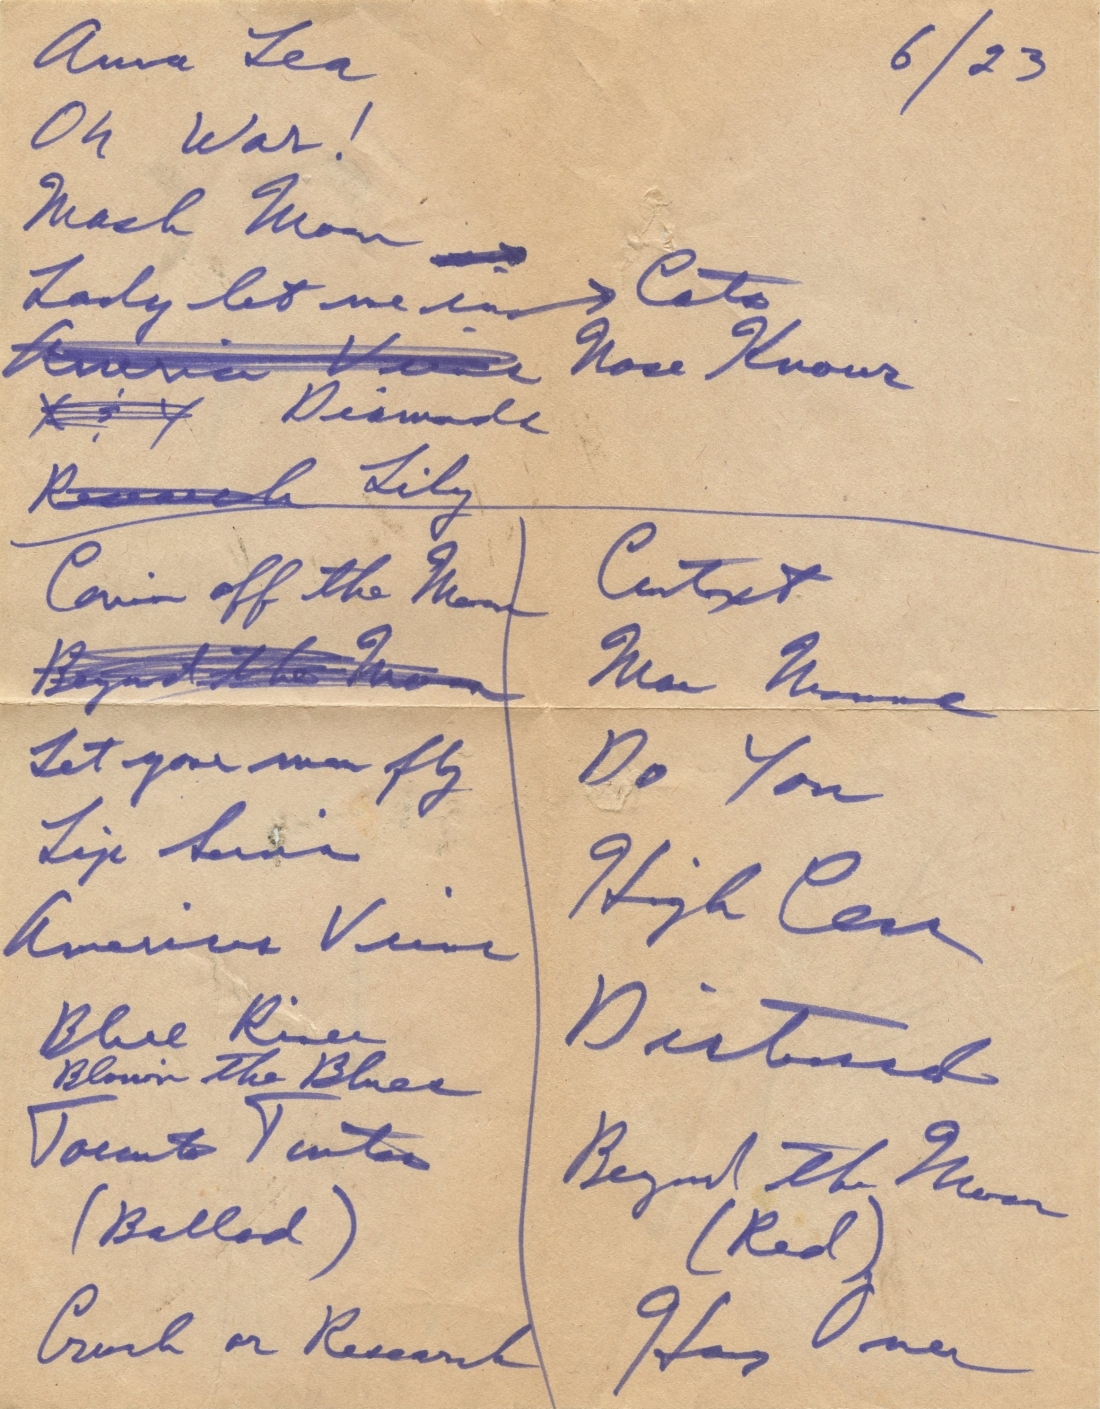 Anna Lea 6/23
Oh War!
Mash Moon
Lady let me in → Cats
America Nose Knows
X & Y Diamonds
Research Lily
Comin off the Moon
Beyond the Moon
Let your man fly
Lip Service
American
Blue River
Blowin the Blues
Toronto Tontos
(Ballad)
Crush or Research
Context
Mau
Do You
High Con
Disturbed
Beyond the Moon
(Red)
Hang Over